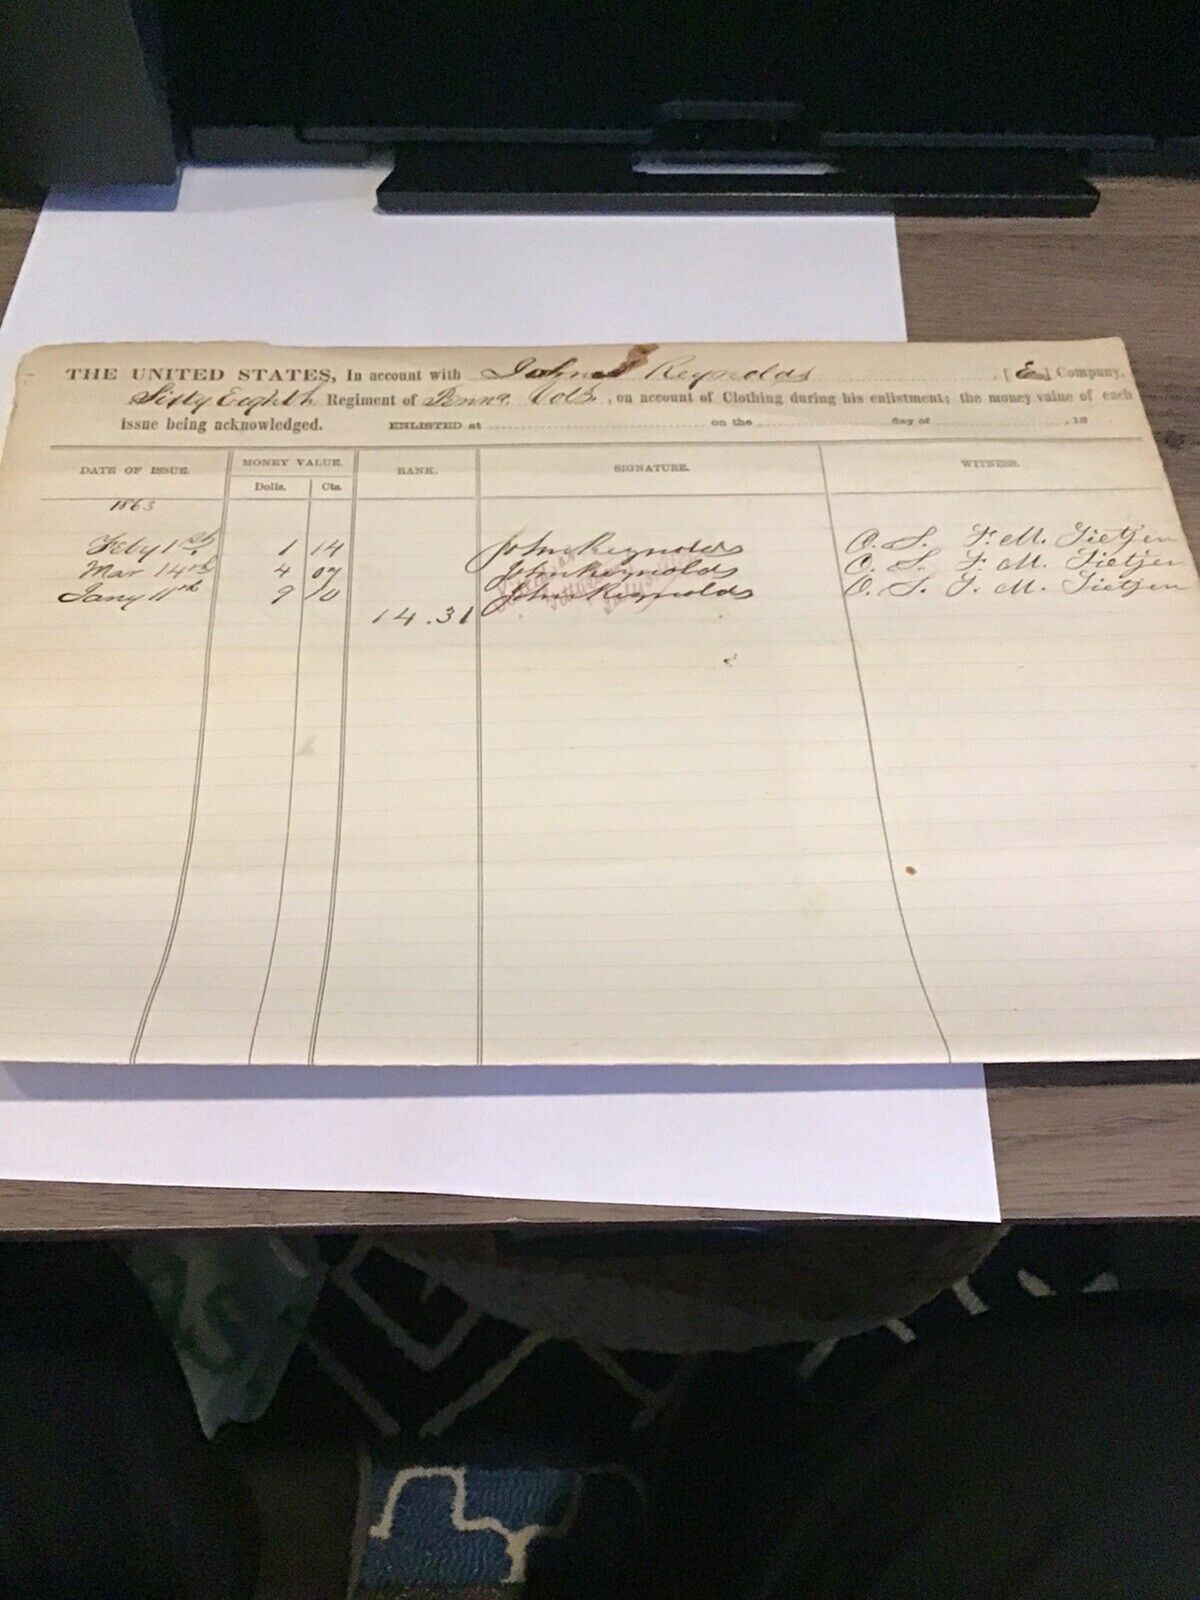 THE UNITED STATES, In account with John Reynolds, [E] Company,
Sixty Eighth Regiment of Penna. Vols, on account of Clothing during his enlistment; the money value of each
issue being acknowledged. ENLISTED at on the day of , 18
DATE OF ISSUE. MONEY VALUE. RANK. SIGNATURE. WITNESS.
Dolls. Cts.
1863
Feby 1st 1 14 John Reynolds O. S. F. M. Tietjen
Mar 14th 4 07 John Reynolds O. S. F. M. Tietjen
Jany 11th 9 10 John Reynolds O. S. F. M. Tietjen
14.31